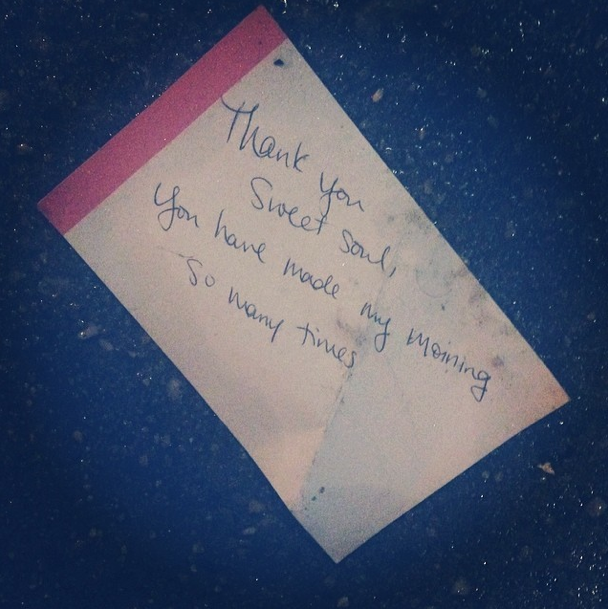 Thank you
Sweet soul,
You have made my morning
So many times